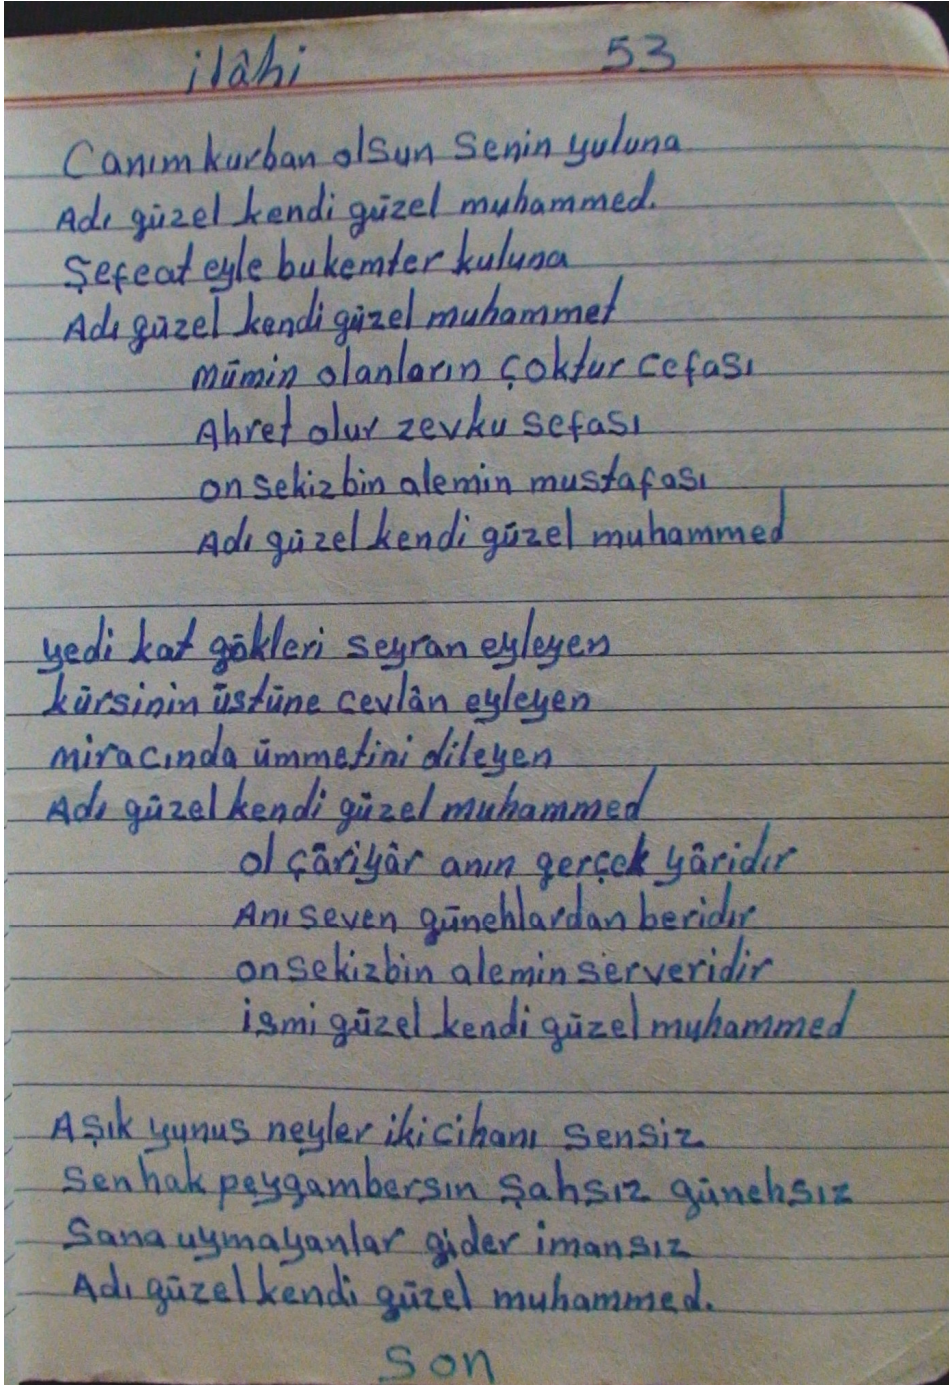 ilâhi 53
Canım kurban olsun senin yuluna
Adı güzel kendi güzel muhammed.
Şefeat eyle bu kemter kuluna
Adı güzel kendi güzel muhammet
mümin olanların çoktur cefası
Ahret olur zevku sefası
on sekiz bin alemin mustafası
Adı güzel kendi güzel muhammed
yedi kat gökleri seyran eyleyen
kürsinin üstüne cevlân eyleyen
miracında ümmetini dileyen
Adı güzel kendi güzel muhammed
ol çâriyâr anın gerçek yâridır
Anı seven günehlardan beridır
on sekiz bin alemin serveridir
ismi güzel kendi güzel muhammed
Aşık yunus neyler iki cihanı sensiz
Sen hak peygambersın şahsız günehsız
Sana uymayanlar gider imansız
Adı güzel kendi güzel muhammed.
Son